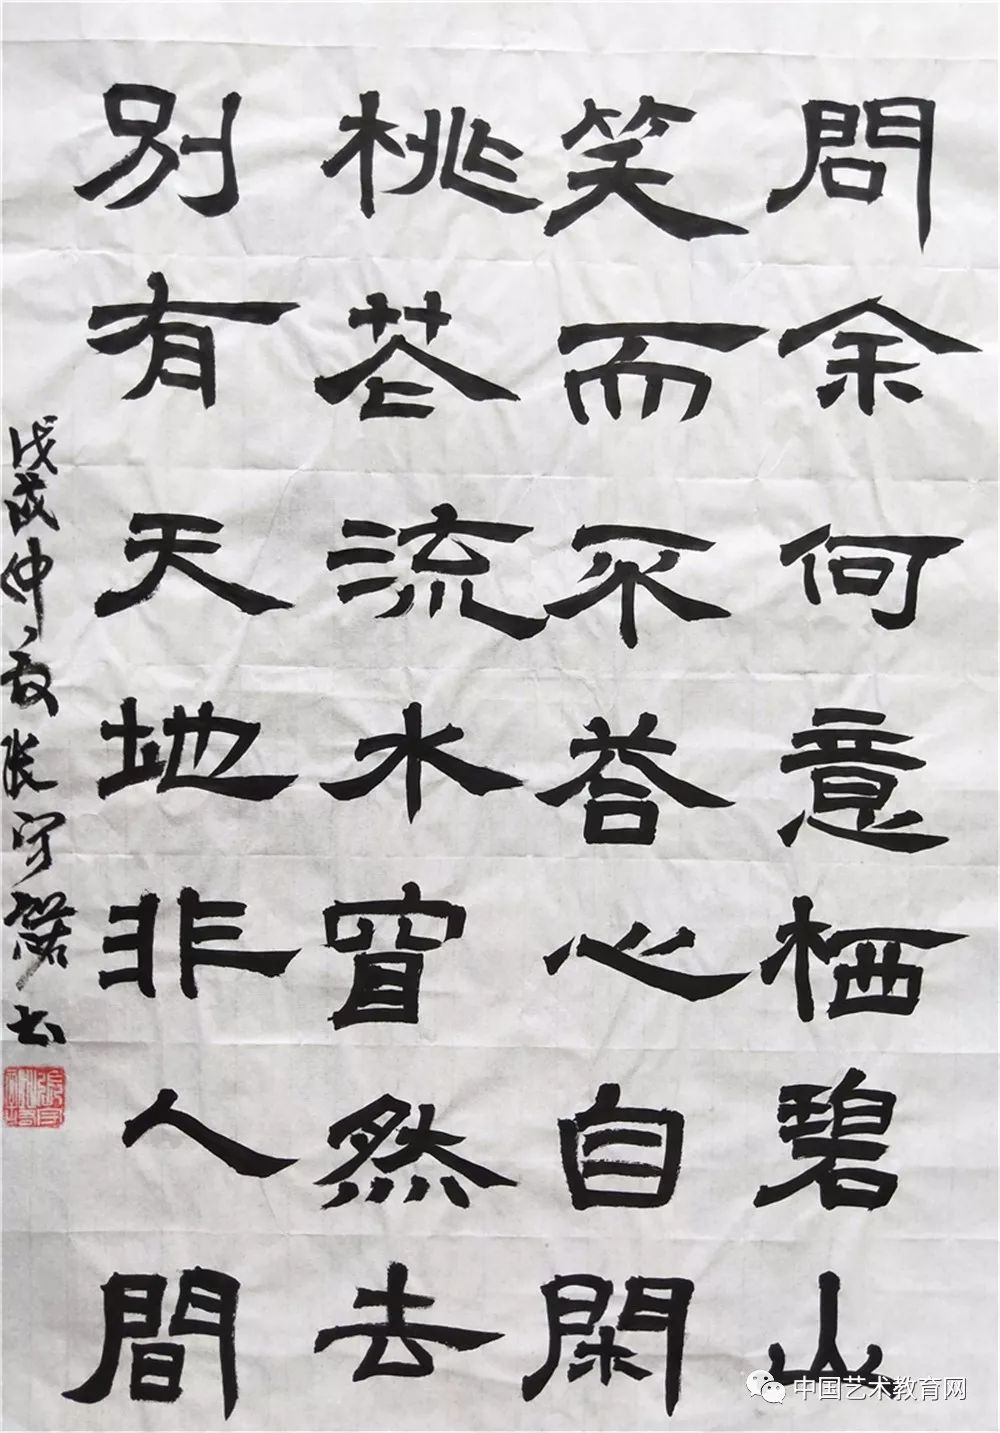 問余何意栖碧山
笑而不荅心自閑
桃花流水窅然去
别有天地非人間
戊戌仲夏张书
中国艺术教育网